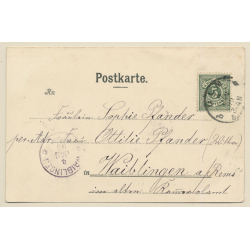 Postkarte.
An
Fräulein Sophie Pfänder
per Adr. Frau Ottilie Pfander
in Waiblingen a/Rems
im alten
WAIBLINGEN
5